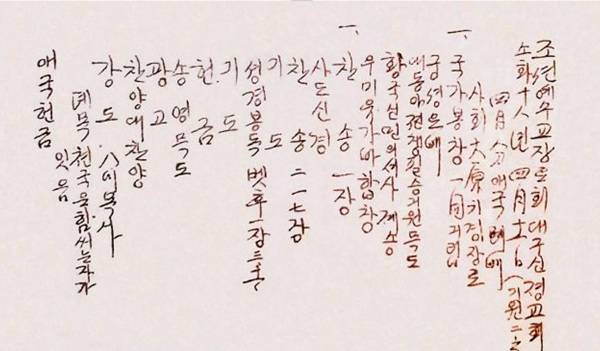 조선예수교장로회대구신정교회
소화十八년四月十一日(기원二
四月分애국礼拜
사회 大原기정장로
一、국가봉창 一同기립
궁성요배
대동아전쟁필승기원묵도
황국신민의서사 제송
우미유가바합창
一、찬송 一장
사도신경
찬송 二一七장
기도
성경봉독 벳후一장三절
기도
헌금
송영묵도
광고
찬양대찬양
강도 八미목사
데목 천국은힘써는자가
잇음
애국헌금